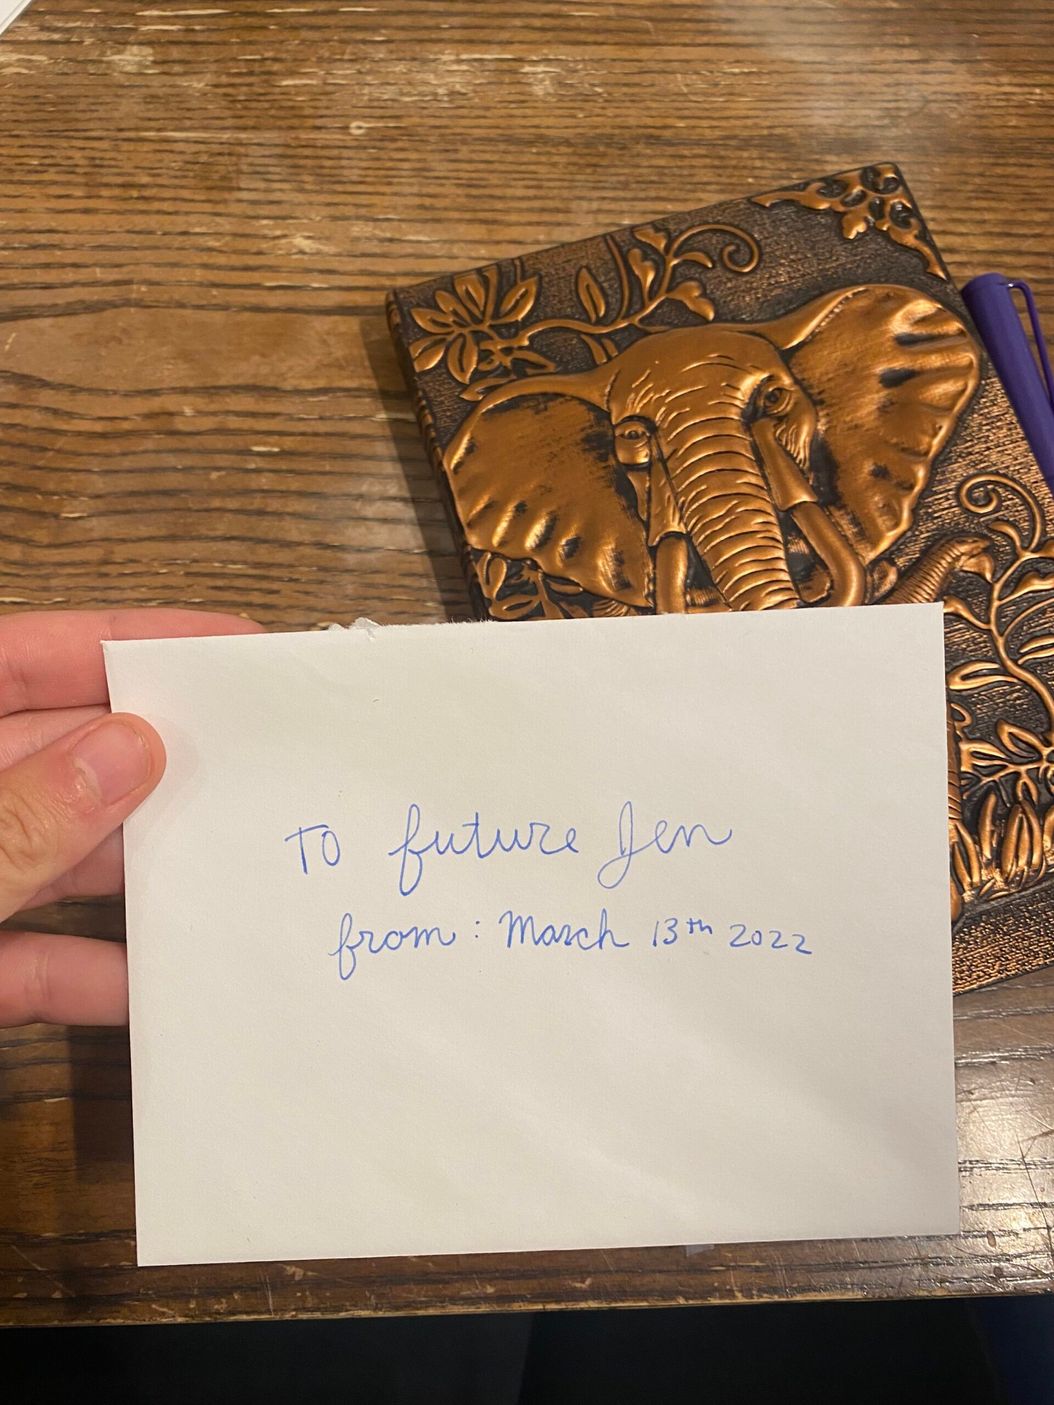 To future Jen
from: March 13th 2022